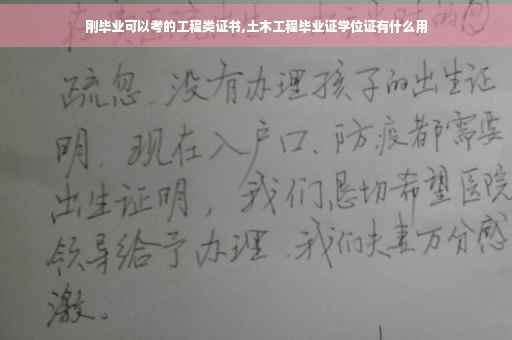 刚毕业可以考的工程类证书,土木工程毕业证学位证有什么用
疏忽.没有办理孩子的出生证
明.现在入户口、防疫都需要
出生证明,我们恳切希望医院
领导给予办理.我们夫妻万分感
激。